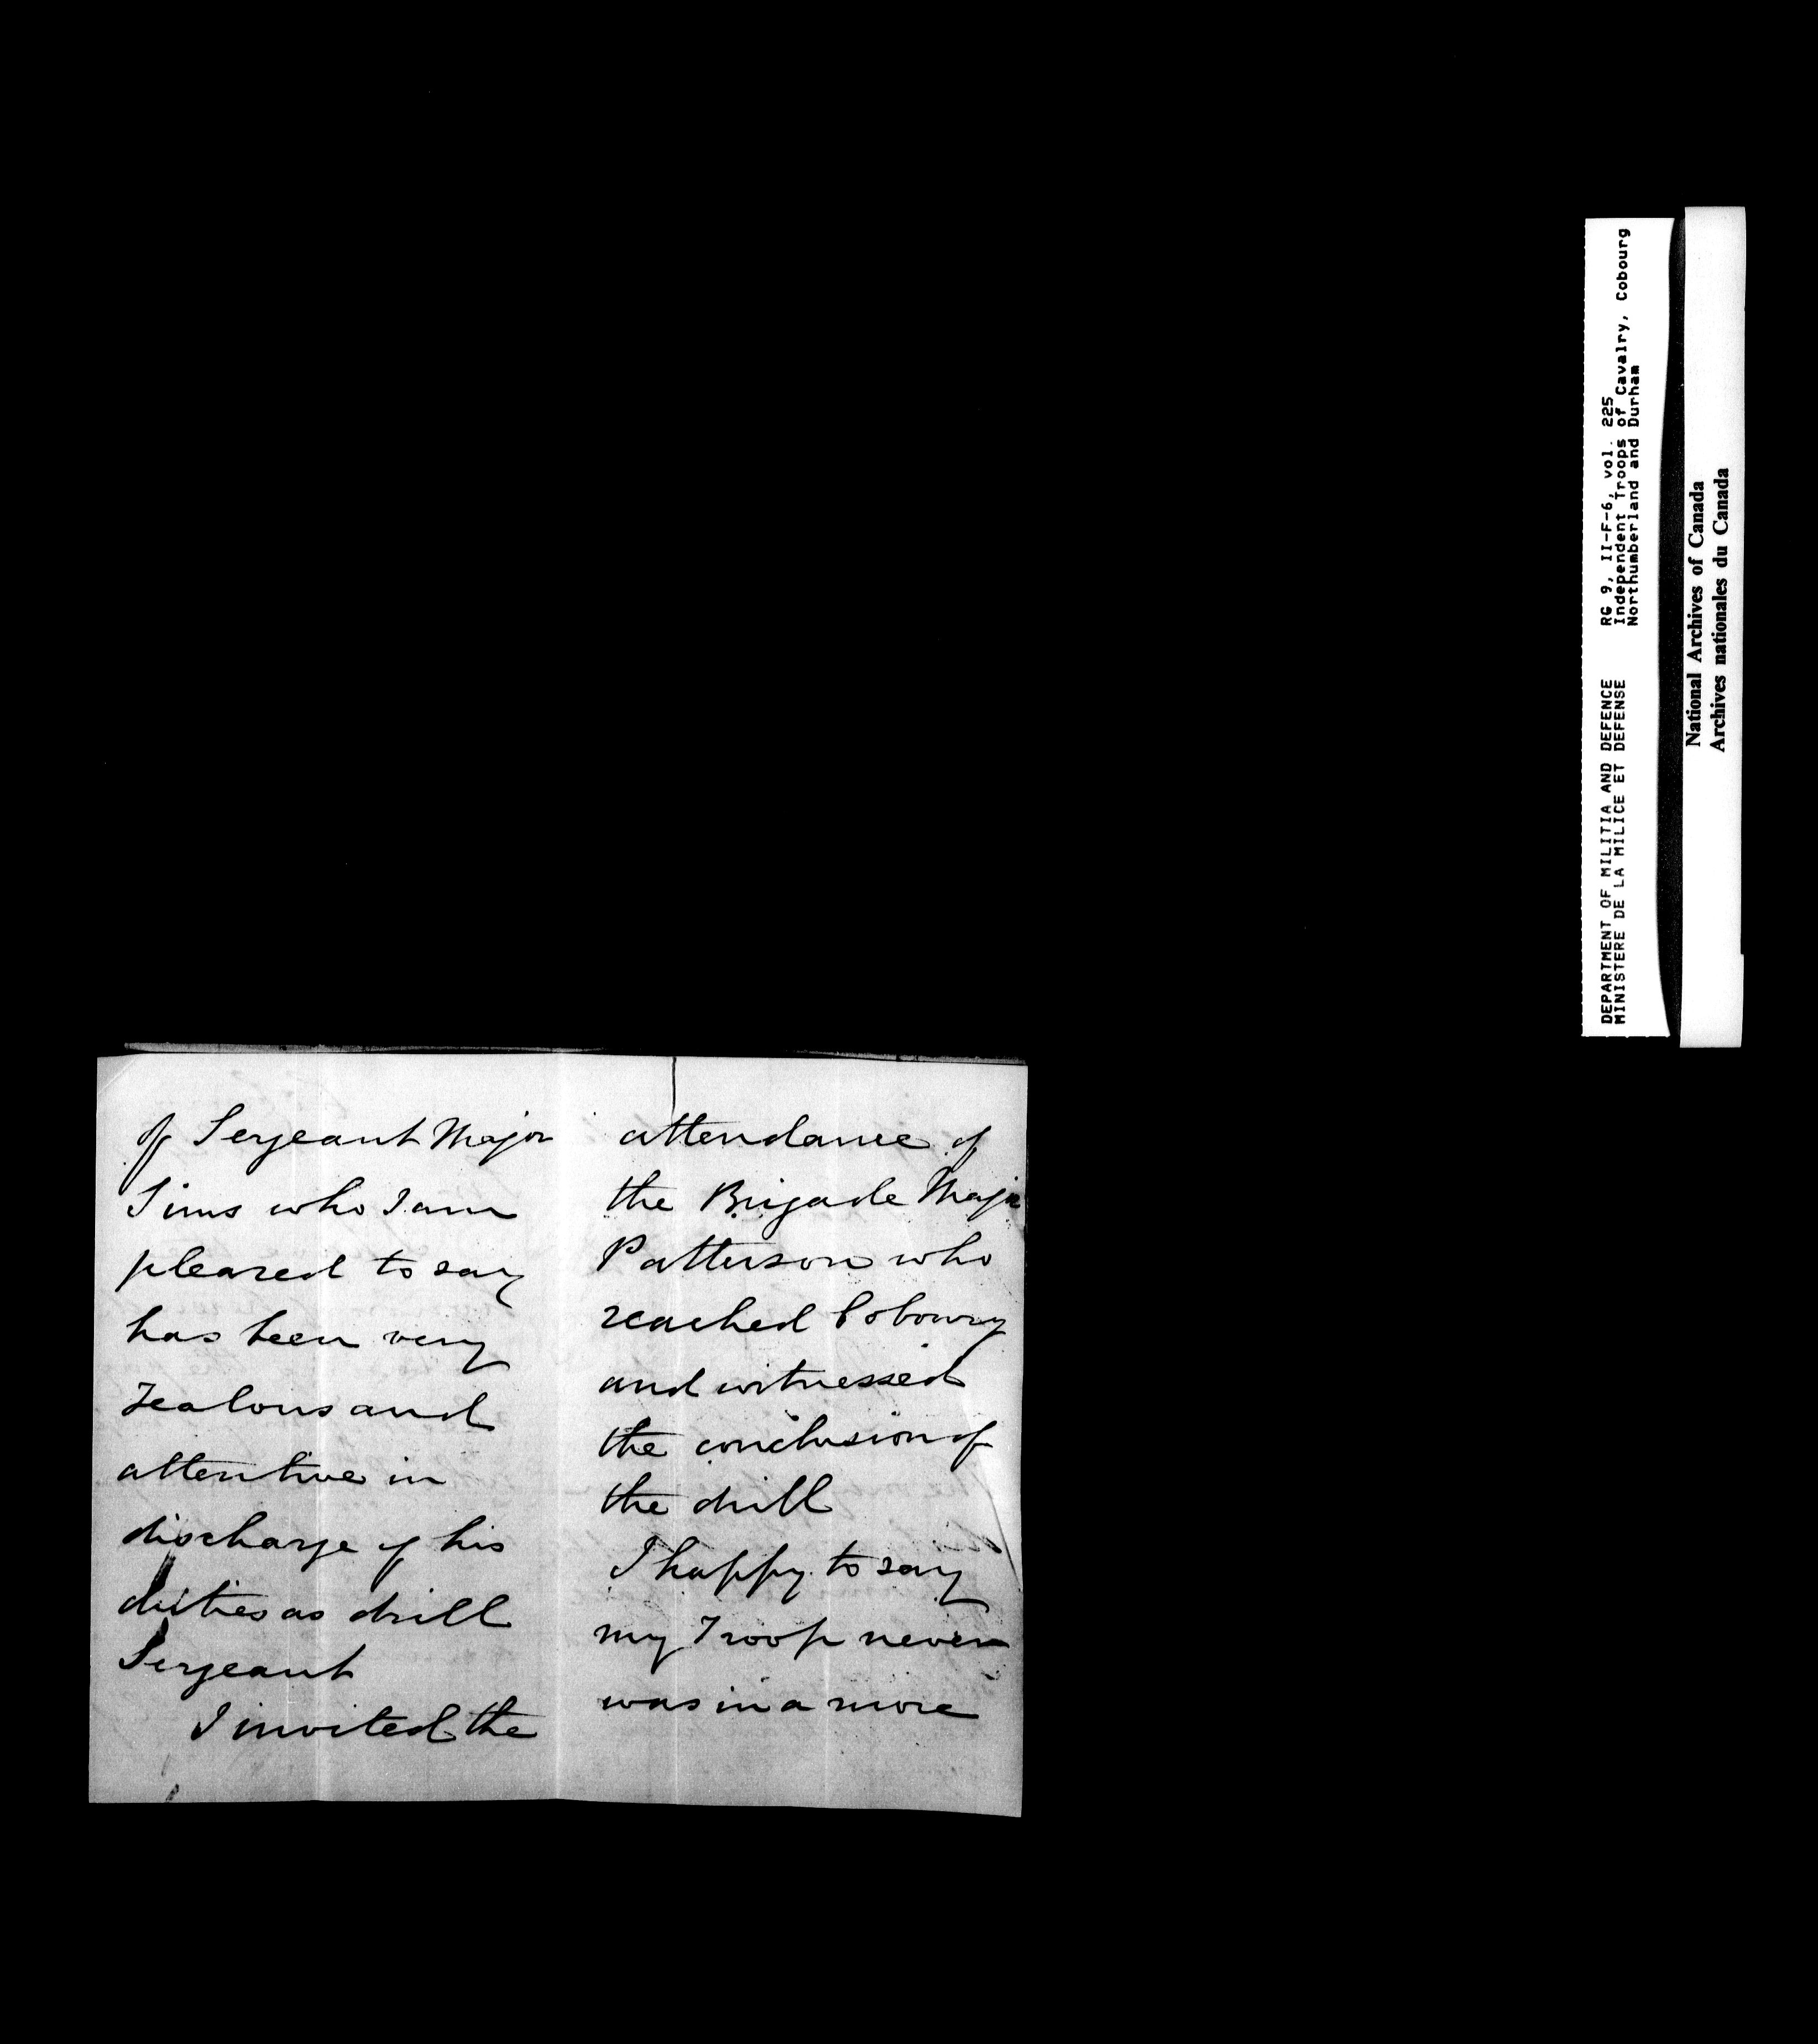 of Sergeant Major
Sims who I am
pleased to say
has been very
zealous and
attentive in
discharge of his
duties as drill
Sergeant
I invited the
attendance of
the Brigade Major
Patterson who
reached Cobourg
and witnessed
the conclusion of
the drill
I happy to say
my Troop never
was in a more
DEPARTMENT OF MILITIA AND DEFENCE
MINISTERE DE LA MILICE ET DEFENSE
RG 9, II-F-6, vol. 225
Independent Troops of Cavalry, Cobourg
Northumberland and Durham
National Archives of Canada
Archives nationales du Canada